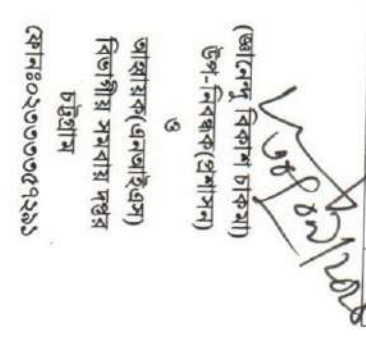 (জ্ঞানেন্দু বিকাশ চাকমা)
উপ-নিবন্ধক(প্রশাসন)
ও
আহ্বায়ক(এনআইএস)
বিভাগীয় সমবায় দপ্তর
চট্টগ্রাম
ফোনঃ০২৩৩৩৩৫৭২৯১